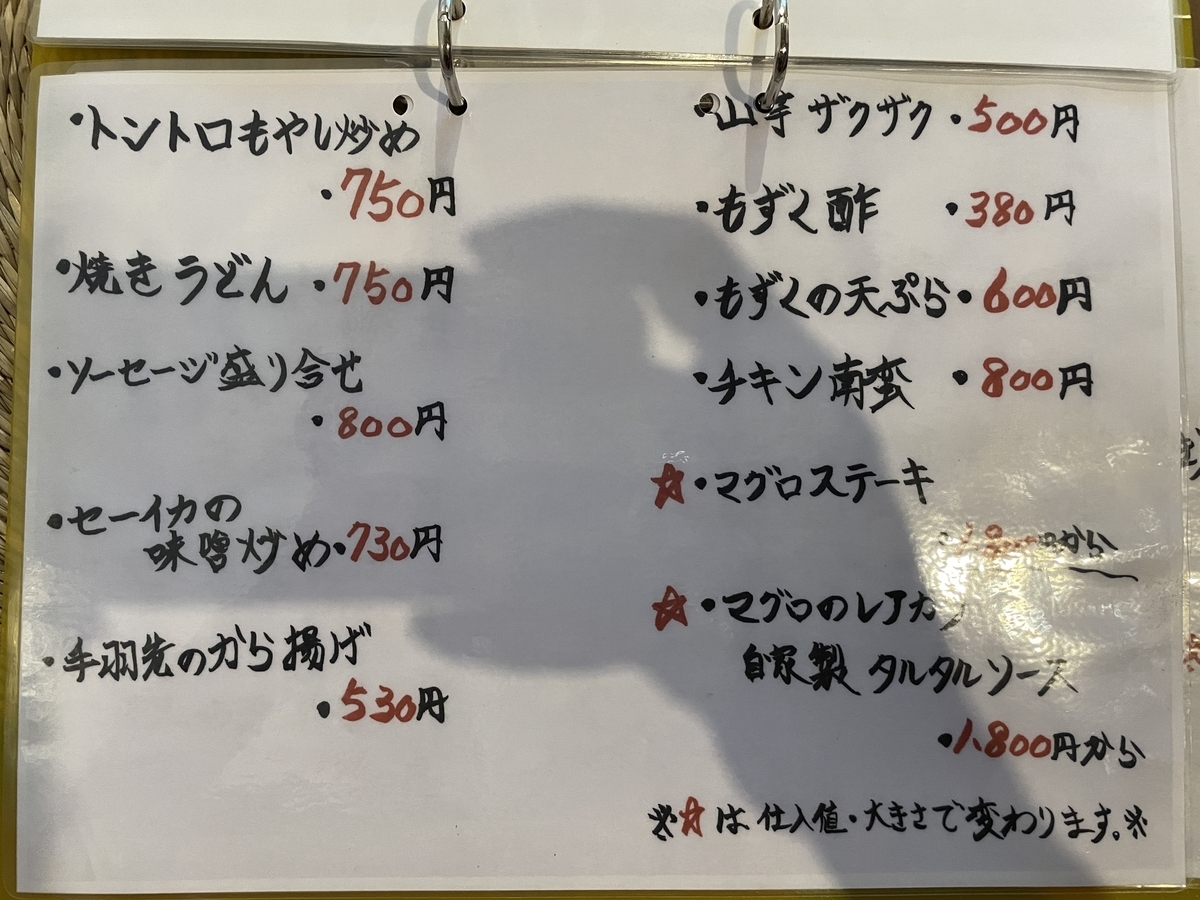 ・トントロもやし炒め
・750円
・焼きうどん ・750円
・ソーセージ盛り合せ
・800円
・セーイカの
味噌炒め・730円
・手羽先のから揚げ
・530円
・山芋ザクザク ・500円
・もずく酢 ・380円
・もずくの天ぷら・600円
・チキン南蛮 ・800円
☆・マグロステーキ
から
☆・マグロのレアカツ
自家製 タルタルソース
・1.800円から
※☆は仕入値・大きさで変わります。※